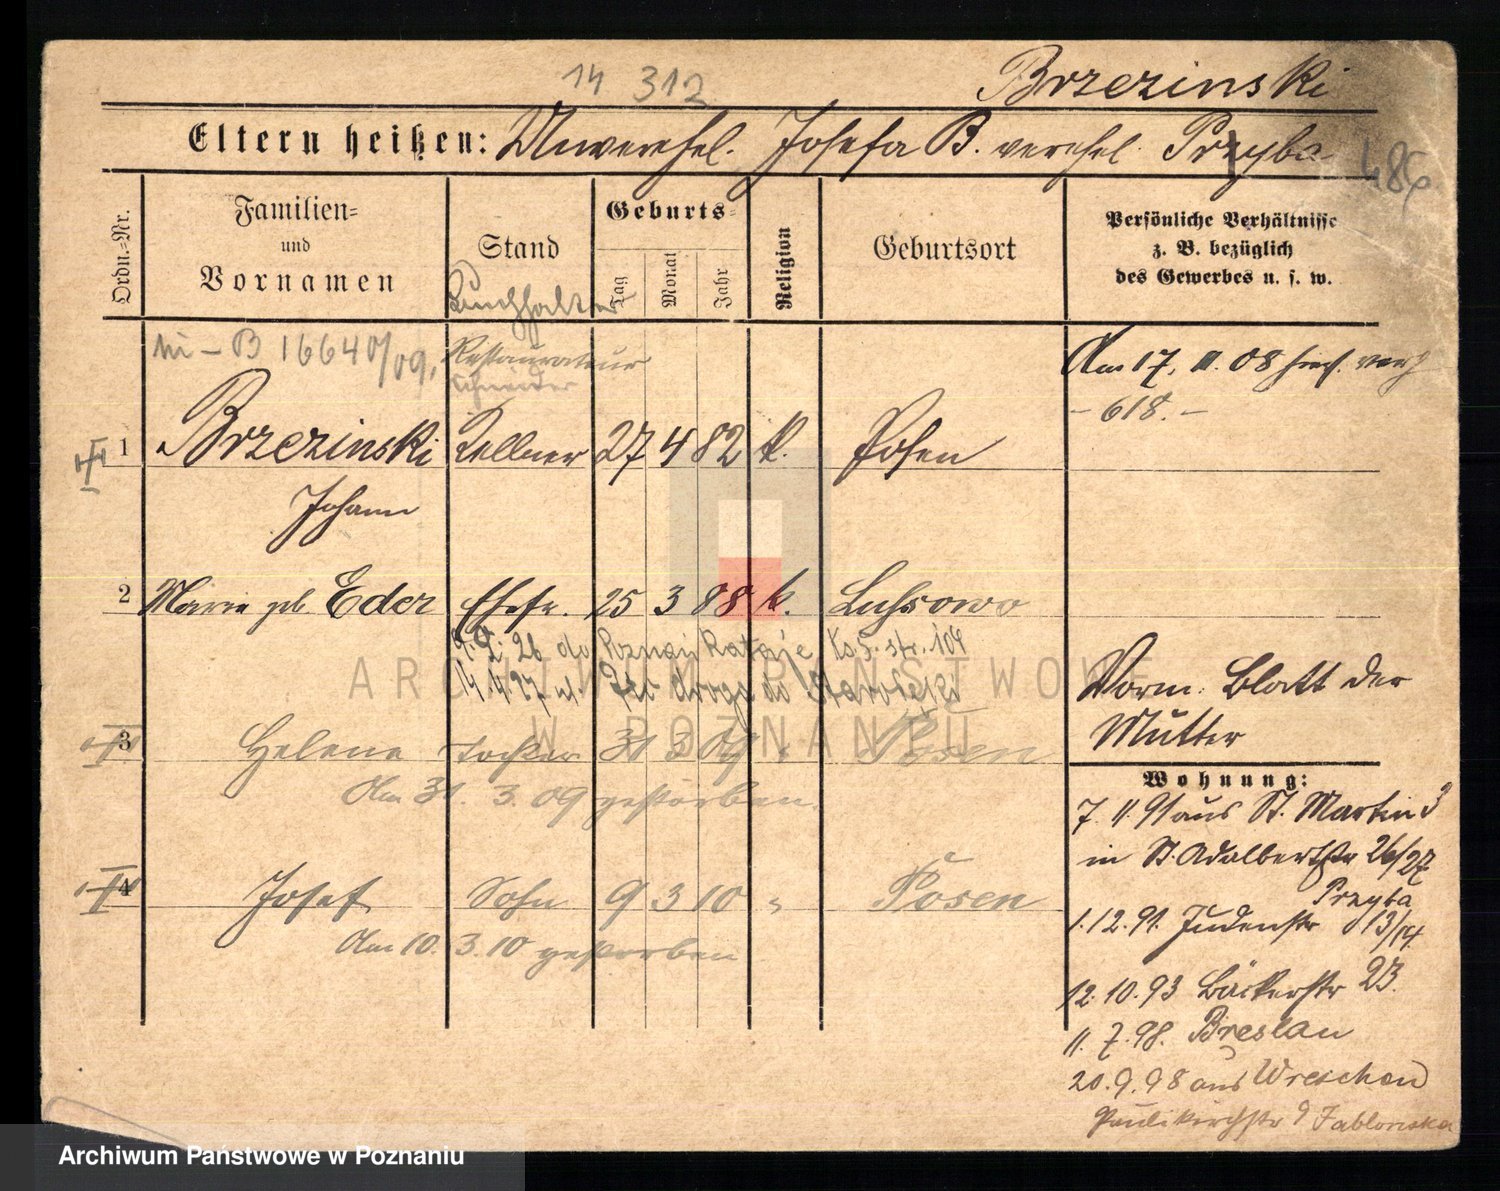 14 312
Brzezinski
Eltern heißen: Unverehel. Josefa B. verehel. Przyba
486
Ordn.=Nr.
Familien=
und
Vornamen
Stand
Geburts=
Tag
Monat
Jahr
Religion
Geburtsort
Persönliche Verhältnisse
z. B. bezüglich
des Gewerbes u. s. w.
Buchhalter
B 16640/09.
Restaurateur
Schneider
Am 17. 11. 08
- 618. -
1 Brzezinski Kellner 27 4 82 k. Posen
Johann
2 Marie geb. Eder Ehefr. 25 3 88 k. Lussowo
9. 2. 26 do Poznań Rataje Ks. 5. str. 104
14. 4. 27 droga do Starołęki
Vorm. Blatt der
Mutter
3 Helene Tochter 31 3 09 " Posen
Am 31. 3. 09 gestorben.
Wohnung:
7. 11. 91 aus St. Martin 3
in St. Adalbertstr 26/27
Przyba
1. 12. 91. Judenstr 13/14
4 Josef Sohn 9 3 10 " Posen
Am 10. 3. 10 gestorben
12. 10. 93 Bäckerstr 23.
11. 7. 98. Breslau
20. 9. 98 aus Wreschen
Paulikirchstr 9 Jablonska
ARCHIWUM PAŃSTWOWE
W POZNANIU
Archiwum Państwowe w Poznaniu